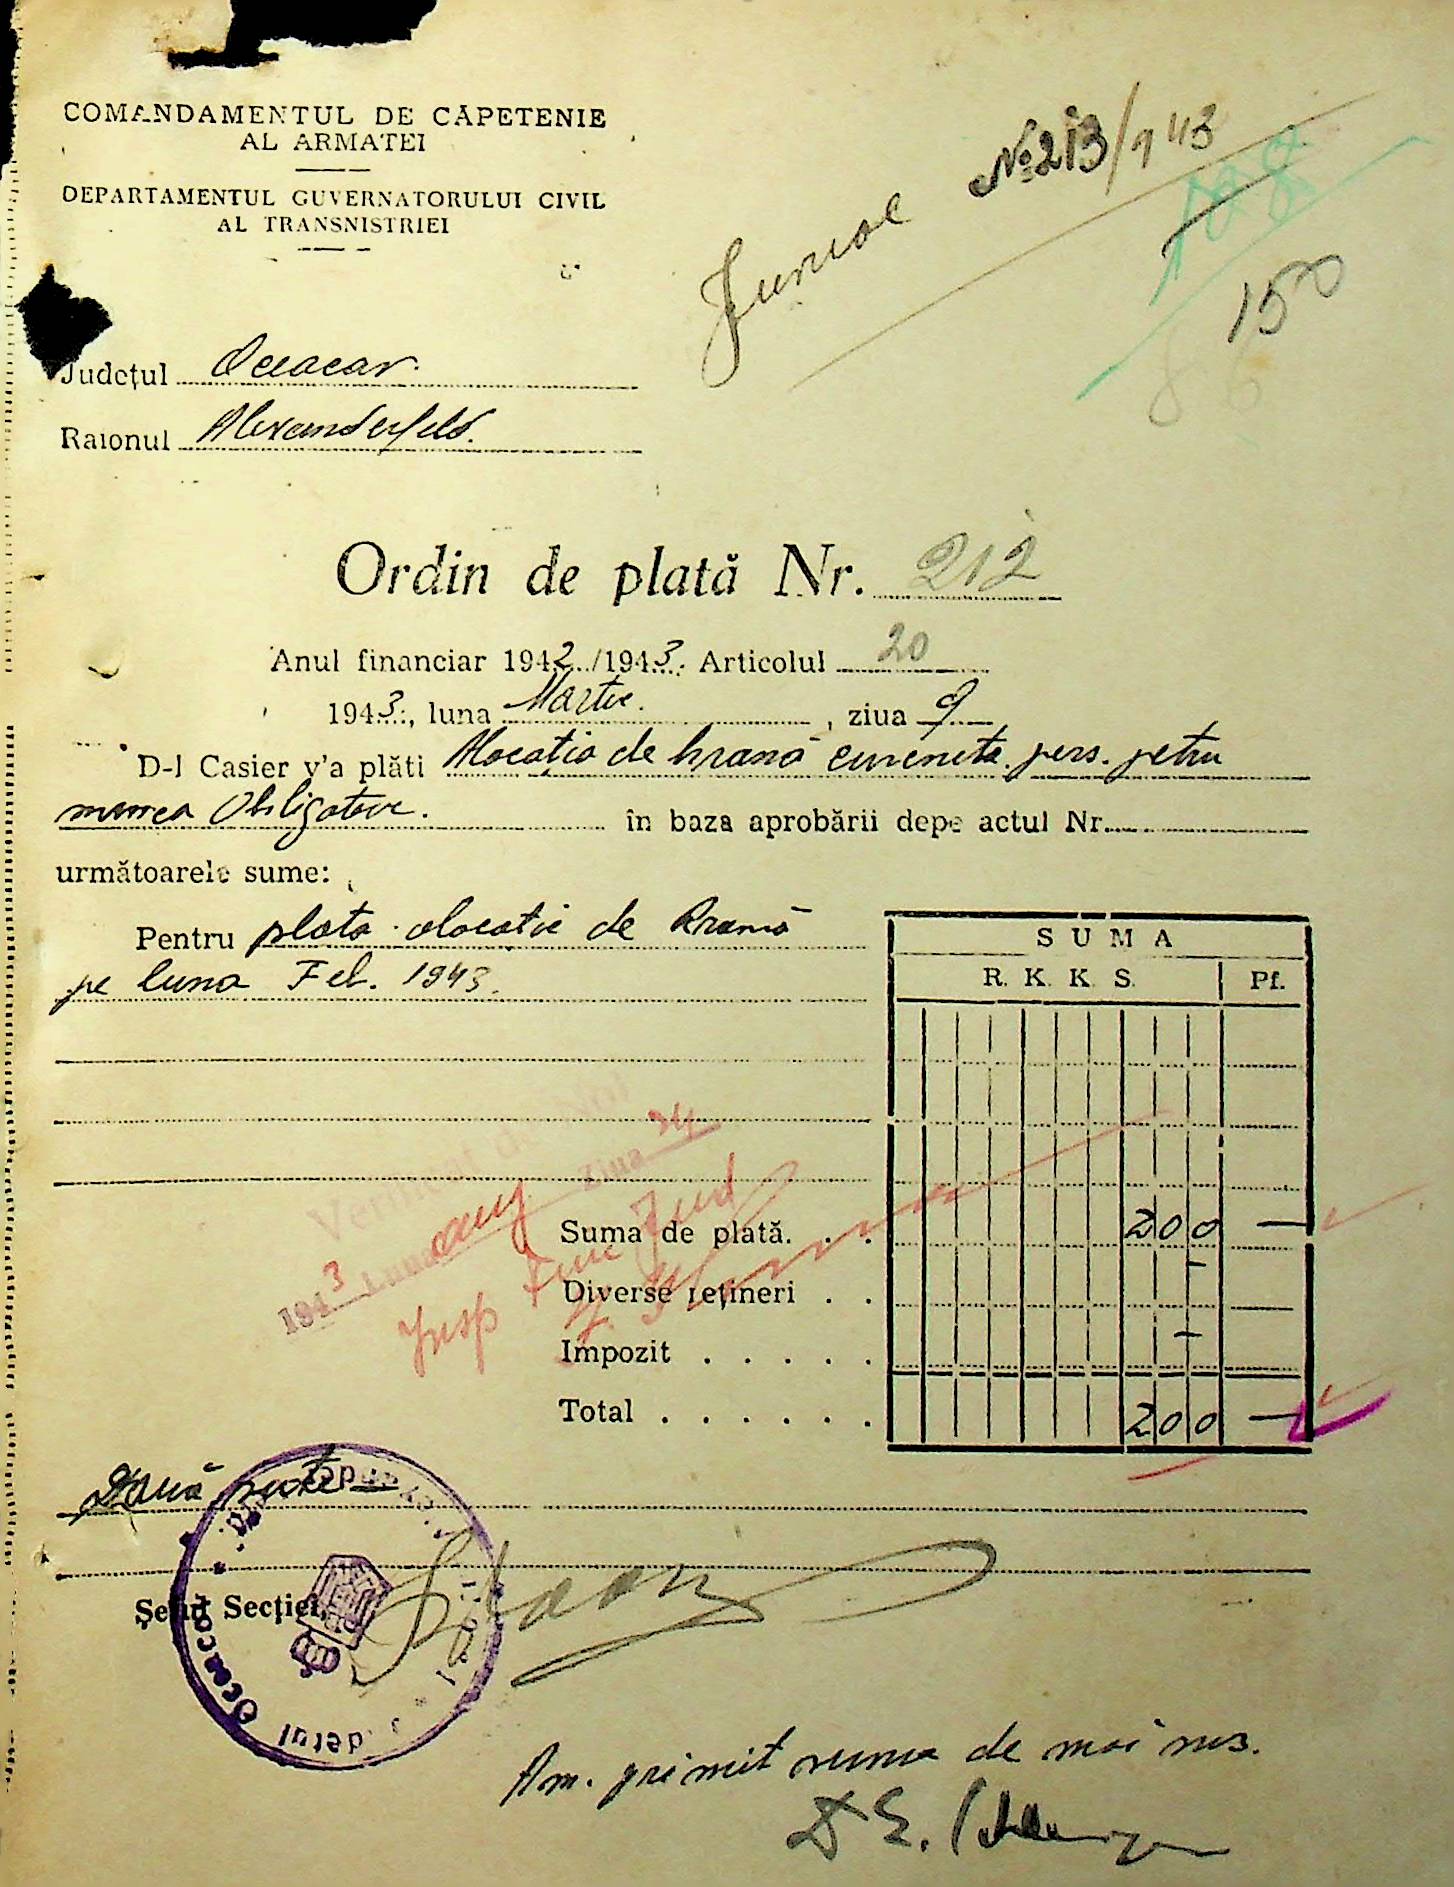 COMANDAMENTUL DE CĂPETENIE
AL ARMATEI
DEPARTAMENTUL GUVERNATORULUI CIVIL
AL TRANSNISTRIEI
Jurnal № 213/943
198
150
86
Județul Oceacov.
Raionul Alexanderfeld.
Ordin de plată Nr. 212
Anul financiar 1942/1943. Articolul 20
1943, luna Martie. , ziua 9
D-l Casier v'a plăti Alocația de hrană cuvenită pers. petru
munca Obligatorie. în baza aprobării depe actul Nr.
următoarele sume:
Pentru plata alocatie de hrană
pe luna Feb. 1943.
SUMA
R. K. K. S. Pf.
Verificat de Noi
1943 Luna aug Ziua 24
Insp Finc Jud
Suma de plată. . . 200 —
Diverse rețineri . . - —
Impozit . . . . . -
Total . . . . . . 200 —
Două sute
Șeful Secției
Județul Oceacov
Am. primit suma de mai sus.
D E.